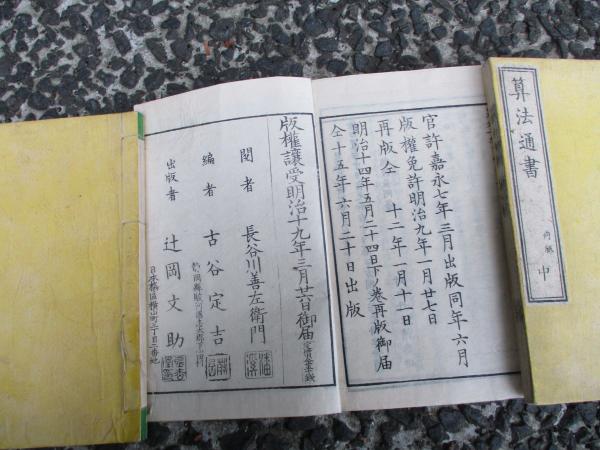 官許嘉永七年三月出版同年六月
版權免許明治九年一月廿七日
再版仝 十二年一月十一日
明治十四年五月二十四日下ノ巻再版御届
仝十五年六月二十日出版
版權讓受明治十九年三月廿六日御届
閲者 長谷川善左衛門
編者 古谷定吉
出版者 辻岡文助
日本橋區横山町三丁目二番地
算法通書
中